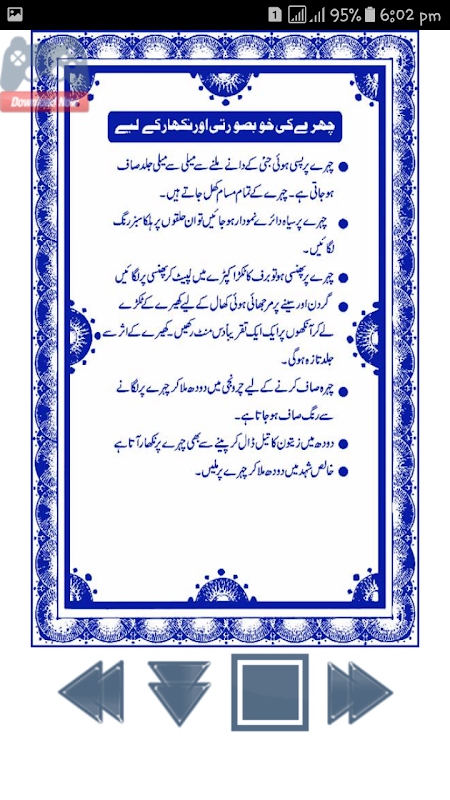 95% 6:02 pm
1
Download Now
چہرے کی خوبصورتی اور نکھار کے لیے
چہرے پر پسی ہوئی جئی کے دانے ملنے سے میلی سے میلی جلد صاف
ہو جاتی ہے۔ چہرے کے تمام مسام کھل جاتے ہیں۔
چہرے پر سیاہ دائرے نمودار ہو جائیں تو ان حلقوں پر ہلکا سبز رنگ
لگائیں۔
چہرے پر پھنسی ہو تو برف کا ٹکڑا کپڑے میں لپیٹ کر پھنسی پر لگائیں
گردن اور سینے پر مرجھائی ہوئی کھال کے لیے کھیرے کے ٹکڑے
لے کر آنکھوں پر ایک ایک تقریباً دس منٹ رکھیں۔ کھیرے کے اثر سے
جلد تازہ ہوگی۔
چہرہ صاف کرنے کے لیے چرونجی میں دودھ ملا کر چہرے پر لگانے
سے رنگ صاف ہو جاتا ہے۔
دودھ میں زیتون کا تیل ڈال کر پینے سے بھی چہرے پر نکھار آتا ہے
خالص شہد میں دودھ ملا کر چہرے پر ملیں۔